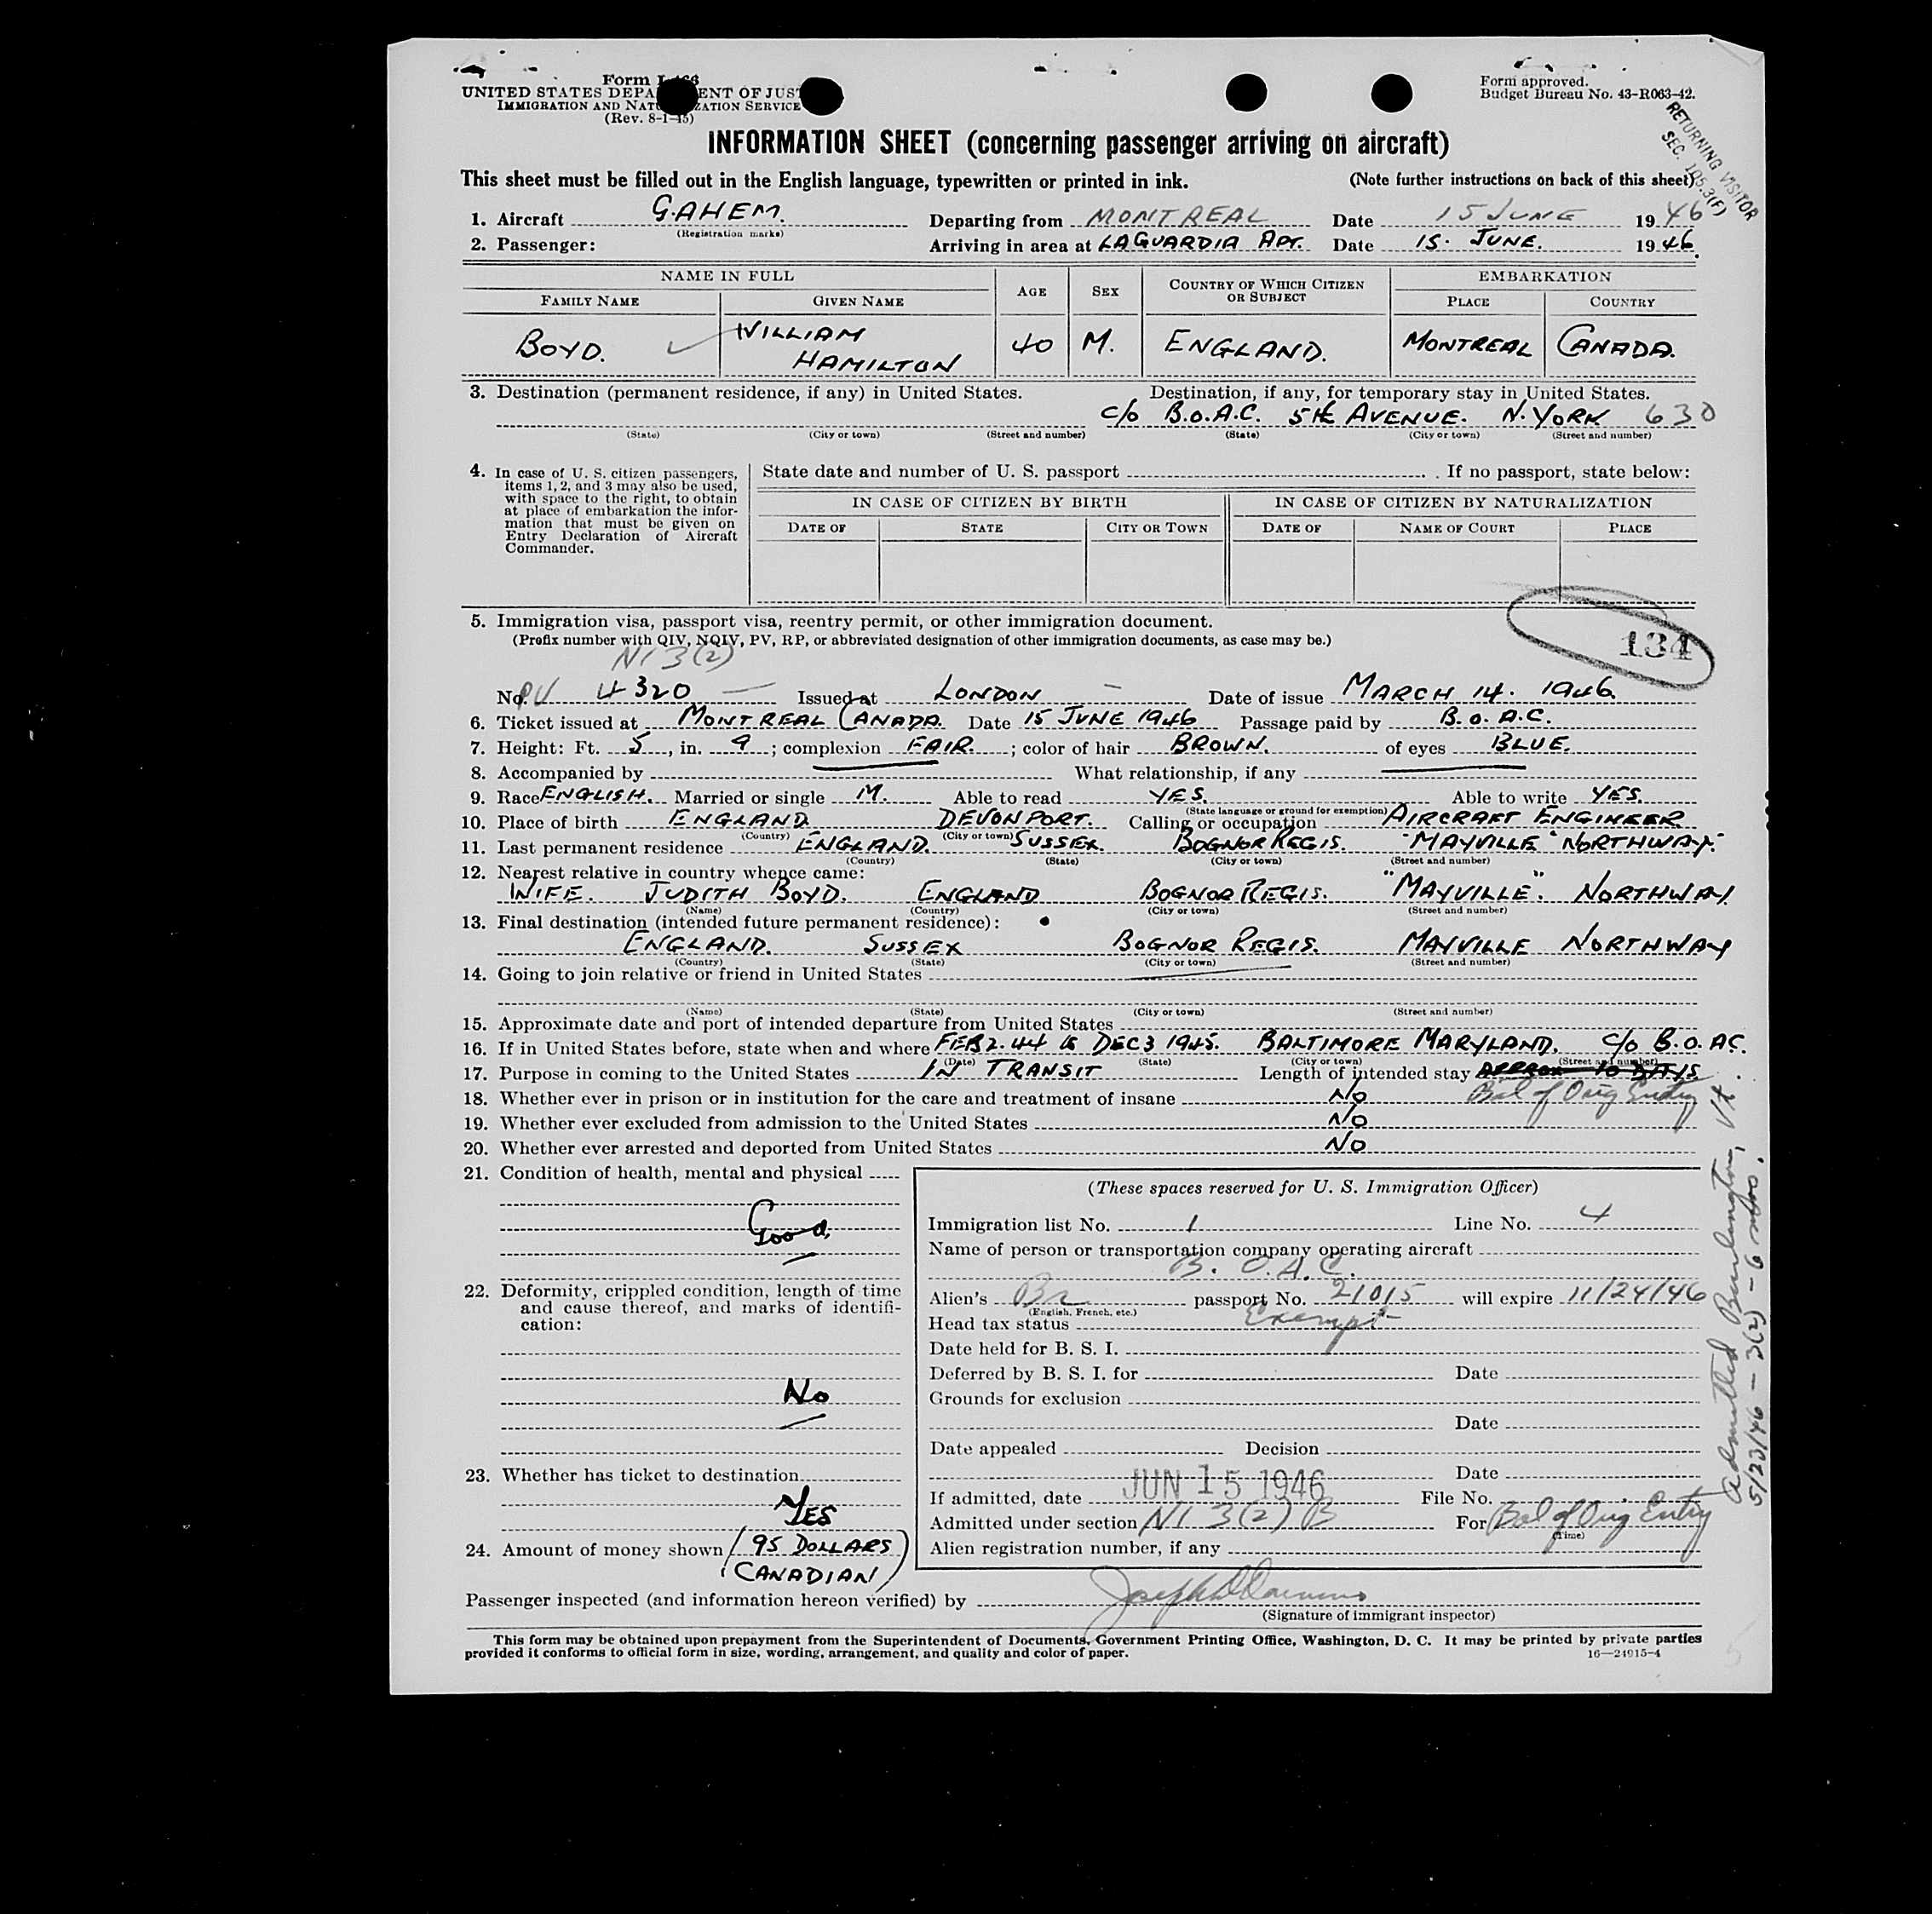 Form I-466
UNITED STATES DEPARTMENT OF JUSTICE
IMMIGRATION AND NATURALIZATION SERVICE
(Rev. 8-1-45)
Form approved.
Budget Bureau No. 43-R063-42.
RETURNING VISITOR
SEC. 105.3(F)
INFORMATION SHEET (concerning passenger arriving on aircraft)
This sheet must be filled out in the English language, typewritten or printed in ink. (Note further instructions on back of this sheet)
1. Aircraft G.AHEM. Departing from MONTREAL Date 15 JUNE 1946
(Registration marks)
2. Passenger: Arriving in area at LAGUARDIA APT. Date 15. JUNE. 1946.
NAME IN FULL AGE SEX COUNTRY OF WHICH CITIZEN OR SUBJECT EMBARKATION
FAMILY NAME GIVEN NAME PLACE COUNTRY
BOYD. WILLIAM HAMILTON 40 M. ENGLAND. MONTREAL CANADA.
3. Destination (permanent residence, if any) in United States. Destination, if any, for temporary stay in United States.
c/o B.O.A.C. 5th AVENUE. N.YORK 630
(State) (City or town) (Street and number) (State) (City or town) (Street and number)
4. In case of U. S. citizen passengers, items 1, 2, and 3 may also be used, with space to the right, to obtain at place of embarkation the information that must be given on Entry Declaration of Aircraft Commander.
State date and number of U. S. passport . If no passport, state below:
IN CASE OF CITIZEN BY BIRTH IN CASE OF CITIZEN BY NATURALIZATION
DATE OF STATE CITY OR TOWN DATE OF NAME OF COURT PLACE
5. Immigration visa, passport visa, reentry permit, or other immigration document.
(Prefix number with QIV, NQIV, PV, RP, or abbreviated designation of other immigration documents, as case may be.)
134
NI 3(2)
No. PV 4320 Issued at LONDON Date of issue MARCH 14. 1946.
6. Ticket issued at MONTREAL CANADA. Date 15 JUNE 1946 Passage paid by B.O.A.C.
7. Height: Ft. 5, in. 9; complexion FAIR.; color of hair BROWN. of eyes BLUE.
8. Accompanied by What relationship, if any
9. Race ENGLISH. Married or single M. Able to read YES. Able to write YES.
(State language or ground for exemption)
10. Place of birth ENGLAND DEVONPORT. Calling or occupation AIRCRAFT ENGINEER
(Country) (City or town)
11. Last permanent residence ENGLAND. SUSSEX. BOGNOR REGIS. "MAYVILLE" NORTHWAY.
(Country) (State) (City or town) (Street and number)
12. Nearest relative in country whence came:
WIFE. JUDITH BOYD. ENGLAND BOGNOR REGIS. "MAYVILLE". NORTHWAY.
(Name) (Country) (City or town) (Street and number)
13. Final destination (intended future permanent residence):
ENGLAND. SUSSEX BOGNOR REGIS. MAYVILLE NORTHWAY
(Country) (State) (City or town) (Street and number)
14. Going to join relative or friend in United States
(Name) (State) (City or town) (Street and number)
15. Approximate date and port of intended departure from United States
16. If in United States before, state when and where FEB 2.44 to DEC 3 1945. BALTIMORE MARYLAND. c/o B.O.A.C.
(Date) (State) (City or town) (Street and number)
17. Purpose in coming to the United States IN TRANSIT Length of intended stay APPROX 10 DAYS.
Bal of Orig Entry
18. Whether ever in prison or in institution for the care and treatment of insane No
19. Whether ever excluded from admission to the United States No
20. Whether ever arrested and deported from United States No
21. Condition of health, mental and physical
Good.
22. Deformity, crippled condition, length of time and cause thereof, and marks of identification:
No
23. Whether has ticket to destination
YES
24. Amount of money shown (95 DOLLARS CANADIAN)
(These spaces reserved for U. S. Immigration Officer)
Immigration list No. 1 Line No. 4
Name of person or transportation company operating aircraft
B. O.A.C.
Alien's Br passport No. 21015 will expire 11/24/46
(English, French, etc.)
Head tax status Exempt
Date held for B. S. I.
Deferred by B. S. I. for Date
Grounds for exclusion
Date
Date appealed Decision
Date
If admitted, date JUN 15 1946 File No.
Admitted under section NI 3(2) B For Bal of Orig Entry
(Time)
Alien registration number, if any
Admitted Burlington, Vt.
5/23/46 - 3(2) - 6 mos.
Passenger inspected (and information hereon verified) by
(Signature of immigrant inspector)
This form may be obtained upon prepayment from the Superintendent of Documents, Government Printing Office, Washington, D. C. It may be printed by private parties
provided it conforms to official form in size, wording, arrangement, and quality and color of paper. 16—24915-4